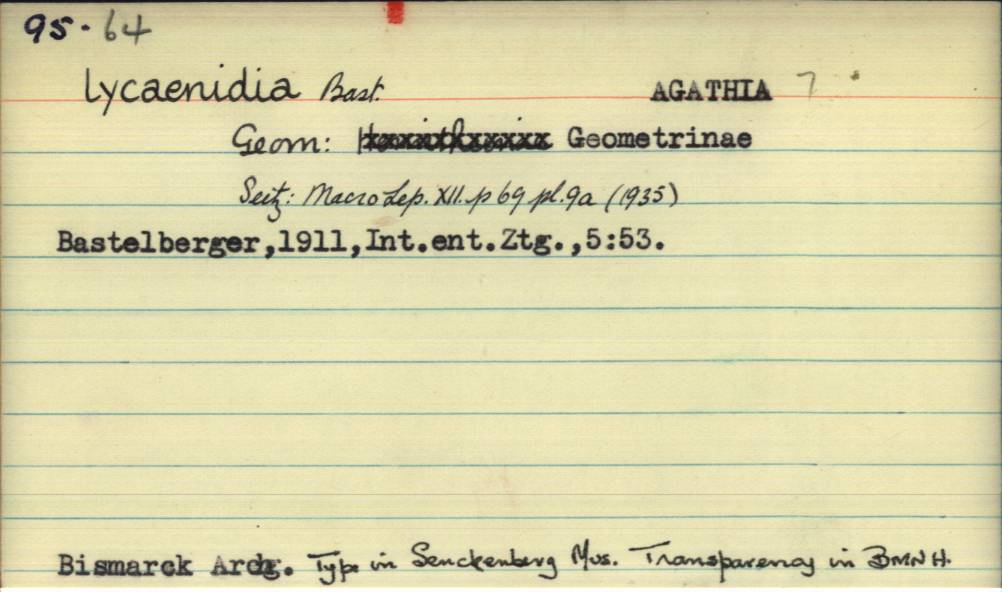 95-64
Lycaenidia Bast. AGATHIA 7
Geom: Geometrinae
Seitz: Macro Lep. XII. p 69 pl. 9a (1935)
Bastelberger,1911,Int.ent.Ztg.,5:53.
Bismarck Arch. Type in Senckenberg Mus. Transparency in BMNH.